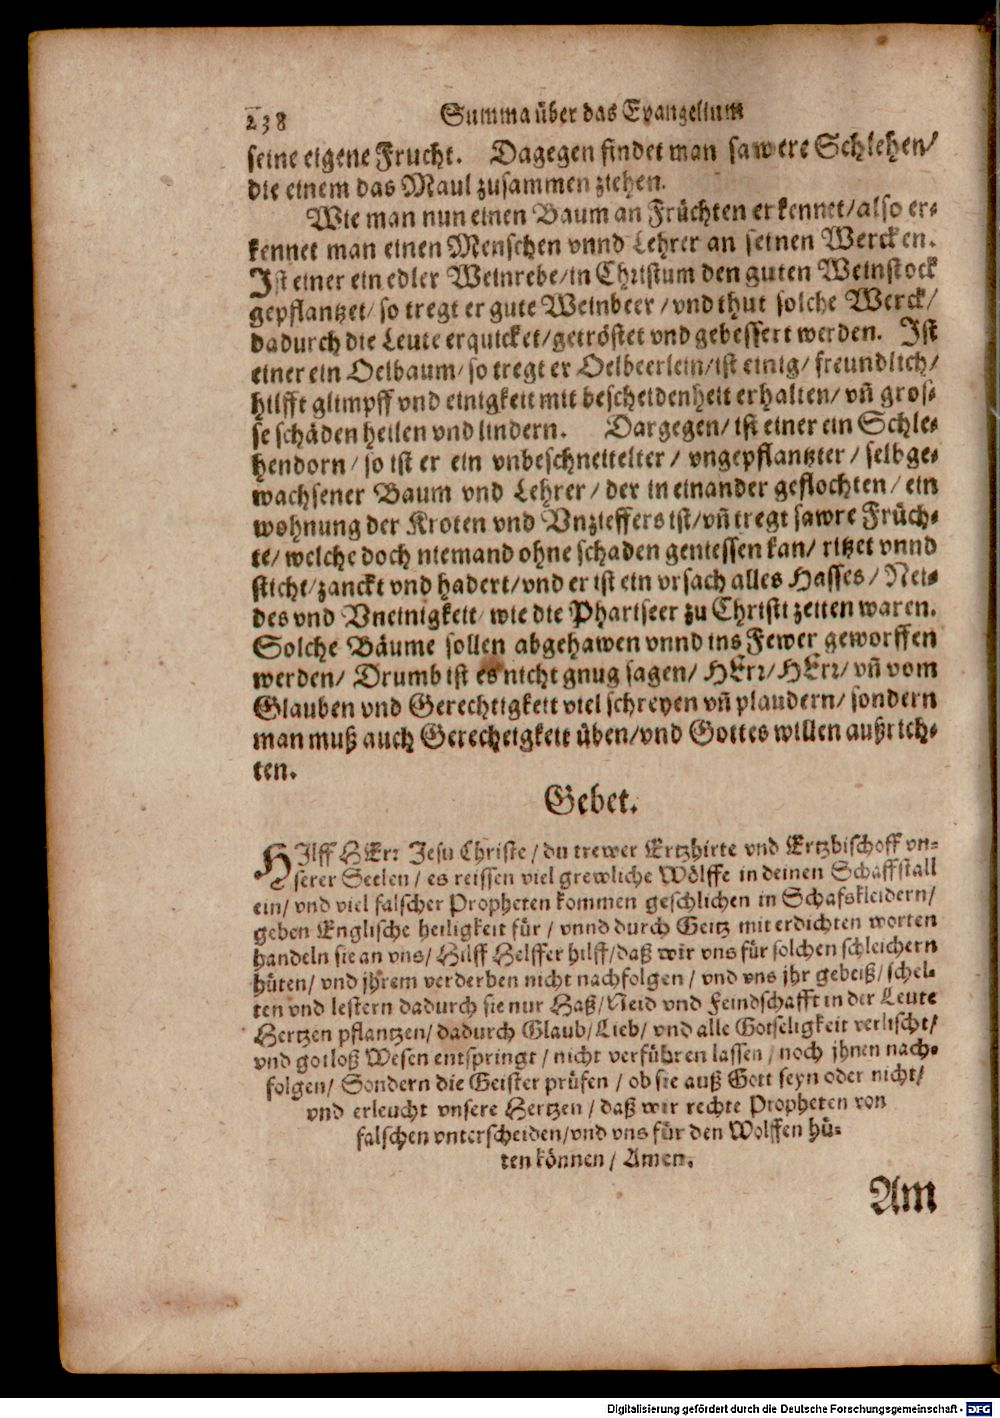 238 Summa über das Evangelium
seine eigene Frucht. Dagegen findet man sawere Schlehen/
die einem das Maul zusammen ziehen.
Wie man nun einen Baum an Früchten erkennet/also er-
kennet man einen Menschen vnnd Lehrer an seinen Wercken.
Ist einer ein edler Weinrebe/in Christum den guten Weinstock
gepflantzet/so tregt er gute Weinbeer/vnd thut solche Werck/
dadurch die Leute erquicket/getröstet vnd gebessert werden. Ist
einer ein Oelbaum/so tregt er Oelbeerlein/ist einig/freundlich/
hilfft glimpff vnd einigkeit mit bescheidenheit erhalten/vñ gros-
se schäden heilen vnd lindern. Dargegen/ist einer ein Schle-
hendorn/so ist er ein vnbeschneittelter/vngepflantzter/selbge-
wachsener Baum vnd Lehrer/der in einander geflochten/ein
wohnung der Kroten vnd Vnzieffers ist/vñ tregt sawre Früch-
te/welche doch niemand ohne schaden geniessen kan/ritzet vnnd
sticht/zanckt vnd hadert/vnd er ist ein vrsach alles Hasses/Nei-
des vnd Vneinigkeit/wie die Phariseer zu Christi zeiten waren.
Solche Bäume sollen abgehawen vnnd ins Fewer geworffen
werden/Drumb ist es nicht gnug sagen/HErr/HErr/vñ vom
Glauben vnd Gerechtigkeit viel schreyen vñ plaudern/sondern
man muß auch Gerechtigkeit üben/vnd Gottes willen außrich-
ten.
Gebet.
HIlff HErr Jesu Christe/du trewer Ertzhirte vnd Ertzbischoff vn-
serer Seelen/es reissen viel grewliche Wölffe in deinen Schaffstall
ein/vnd viel falscher Propheten kommen geschlichen in Schafskleidern/
geben Englische heiligkeit für/vnnd durch Geitz mit erdichten worten
handeln sie an vns/Hilff Helffer hilff/daß wir vns für solchen schleichern
hüten/vnd jhrem verderben nicht nachfolgen/vnd vns jhr gebeiß/schel-
ten vnd lestern dadurch sie nur Haß/Neid vnd Feindschafft in der Leute
Hertzen pflantzen/dadurch Glaub/Lieb/vnd alle Gotseligkeit verlischt/
vnd gotloß Wesen entspringt/nicht verführen lassen/noch jhnen nach-
folgen/Sondern die Geister prüfen/ob sie auß Gott seyn oder nicht/
vnd erleucht vnsere Hertzen/daß wir rechte Propheten von
falschen vnterscheiden/vnd vns für den Wolffen hü-
ten können/Amen.
Am
Digitalisierung gefördert durch die Deutsche Forschungsgemeinschaft - DFG